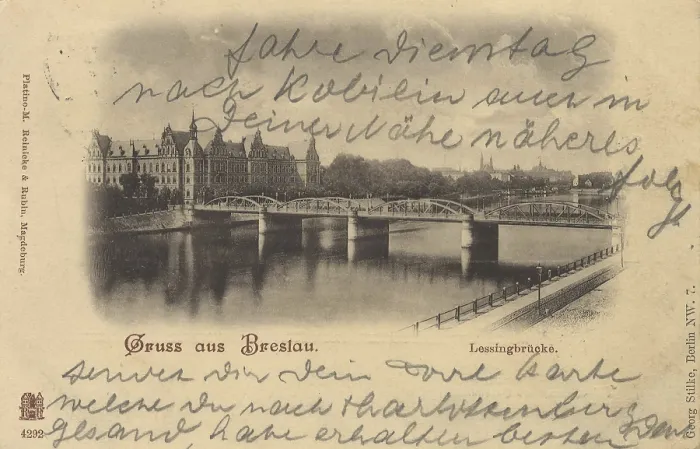 fahre Dienstag
nach Kobilin auch in
Deiner Nähe näheres
folgt
Platino-M. Reinicke & Rubin, Magdeburg.
Gruss aus Breslau.
Lessingbrücke.
Georg Stilke, Berlin NW. 7.
Dir Dein Karte
welche Du nach Charlottenburg
gesand, habe erhalten besten Dank
4292